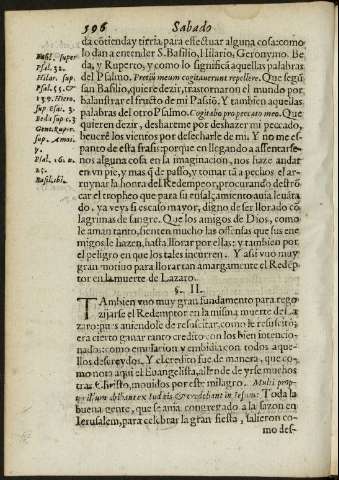 596 Sabado
da cõtienda y tirria para effectuar alguna cosa: como
lo dan a entender S. Basilio, Hilario, Geronymo. Be
da, y Ruperto, y como lo significã aquellas palabras
del Psalmo. Pretiũ meum cogitauerunt repellere. Que segũ
san Basilio, quiere dezir, trastornaron el mundo por
balanstrar el fructo de mi Passiõ. Y tambien aquellas
palabras del otro Psalmo. Cogitabo pro peccato meo. Que
quieren dezir, desharteme por deshazer mi peccado,
heucrè los vientos por desecharle de mi. Y no me es-
panto de esta frasis: porque en llegando a assentarse-
nos alguna cosa en la imaginacion, nos haze andar
en vn pie, y mas q̃ de passo, y tomar tã a pechos el ar-
ruynar la honra del Redemptor, procurando destro-
car el tropheo que para su ensalçamiento auia leuãta
do, ya veys si escaso mayor, digno de ser llorado cõ
lagrimas de sangre. Que los amigos de Dios, como
le aman tanto, sienten mucho las offensas que sus ene
migos le hazen, hasta llorar por ellas: y tambien por
el peligro en que los tales incurren. Y assi vuo muy
gran motiuo para llorar tan amargamente el Redẽp
tor en la muerte de Lazaro.
§. II.
TAmbien vno muy gran fundamento para rego
zijarse el Redemptor en la misma muerte de La
zaro: pues auiendole de resuscitar, como le resuscitò;
era cierto ganar tanto credito con los bien intencio-
nados: como emulacion y embidia: con todos aque-
llos descreydos. Y el credito fue de manera, que co-
mo nota aqui el Euangelista, allende de yrse muchos
tras Christo, mouidos por este milagro. Multi prop-
ter illum abibant ex Iudæis, & credebant in Iesum: Toda la
buena gente, que se auia congregado a la sazon en
Ierusalem, para celebrar la gran fiesta, salieron co-
mo des-
Basil. super
Psal. 32.
Hilar. sup.
Psal. 55. &
139. Hiero.
sup. Esai. 3.
Beda sup. c. 3
Gene. Ruper.
sup. Amos.
Psal. 16. n.
25.
Basil. ibi.